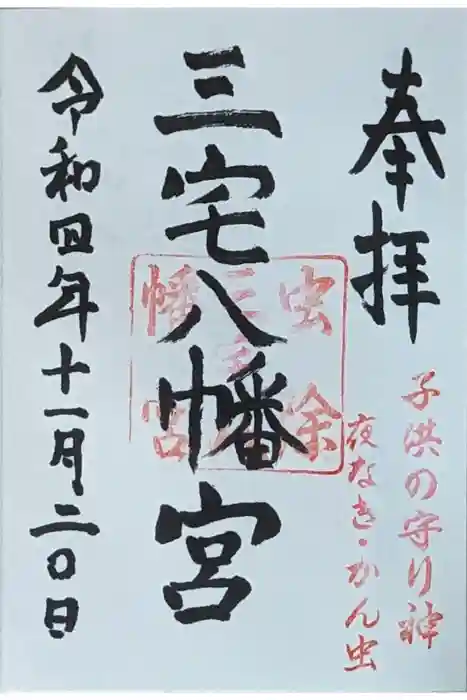 奉拝
子供の守り神
夜なき・かん虫
虫除
三宅八
幡宮
三宅八幡宮
令和四年十一月二〇日